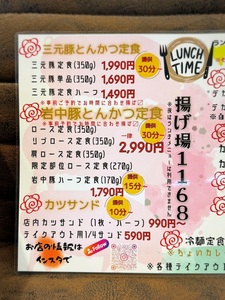 三元豚とんかつ定食
三元豚定食(350g) 1,990円
三元豚単品(350g) 1,690円
三元豚ハーフ定食 1,490円
提供30分~
LUNCH TIME
岩中豚とんかつ定食
ロース定食(350g)
リブロース定食(350g)
肩ロース定食(350g)
限定部位ロース定食(270g)
2,990円
提供30分~
岩中豚ハーフ定食(170g)
1,790円
提供15分~
カツサンド
提供10分~
店内カツサンド(1枚・ハーフ) 990円
テイクアウト用1/4サンド 590円
お店の情報は
インスタで
Follow
揚げ場1168
※夜はランチメニューは
冷麺定食
※各種テイクアウト用